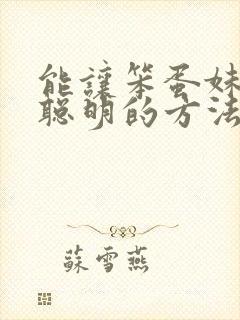 能讓笨蛋妹
聰明的方法
蘇雪燕